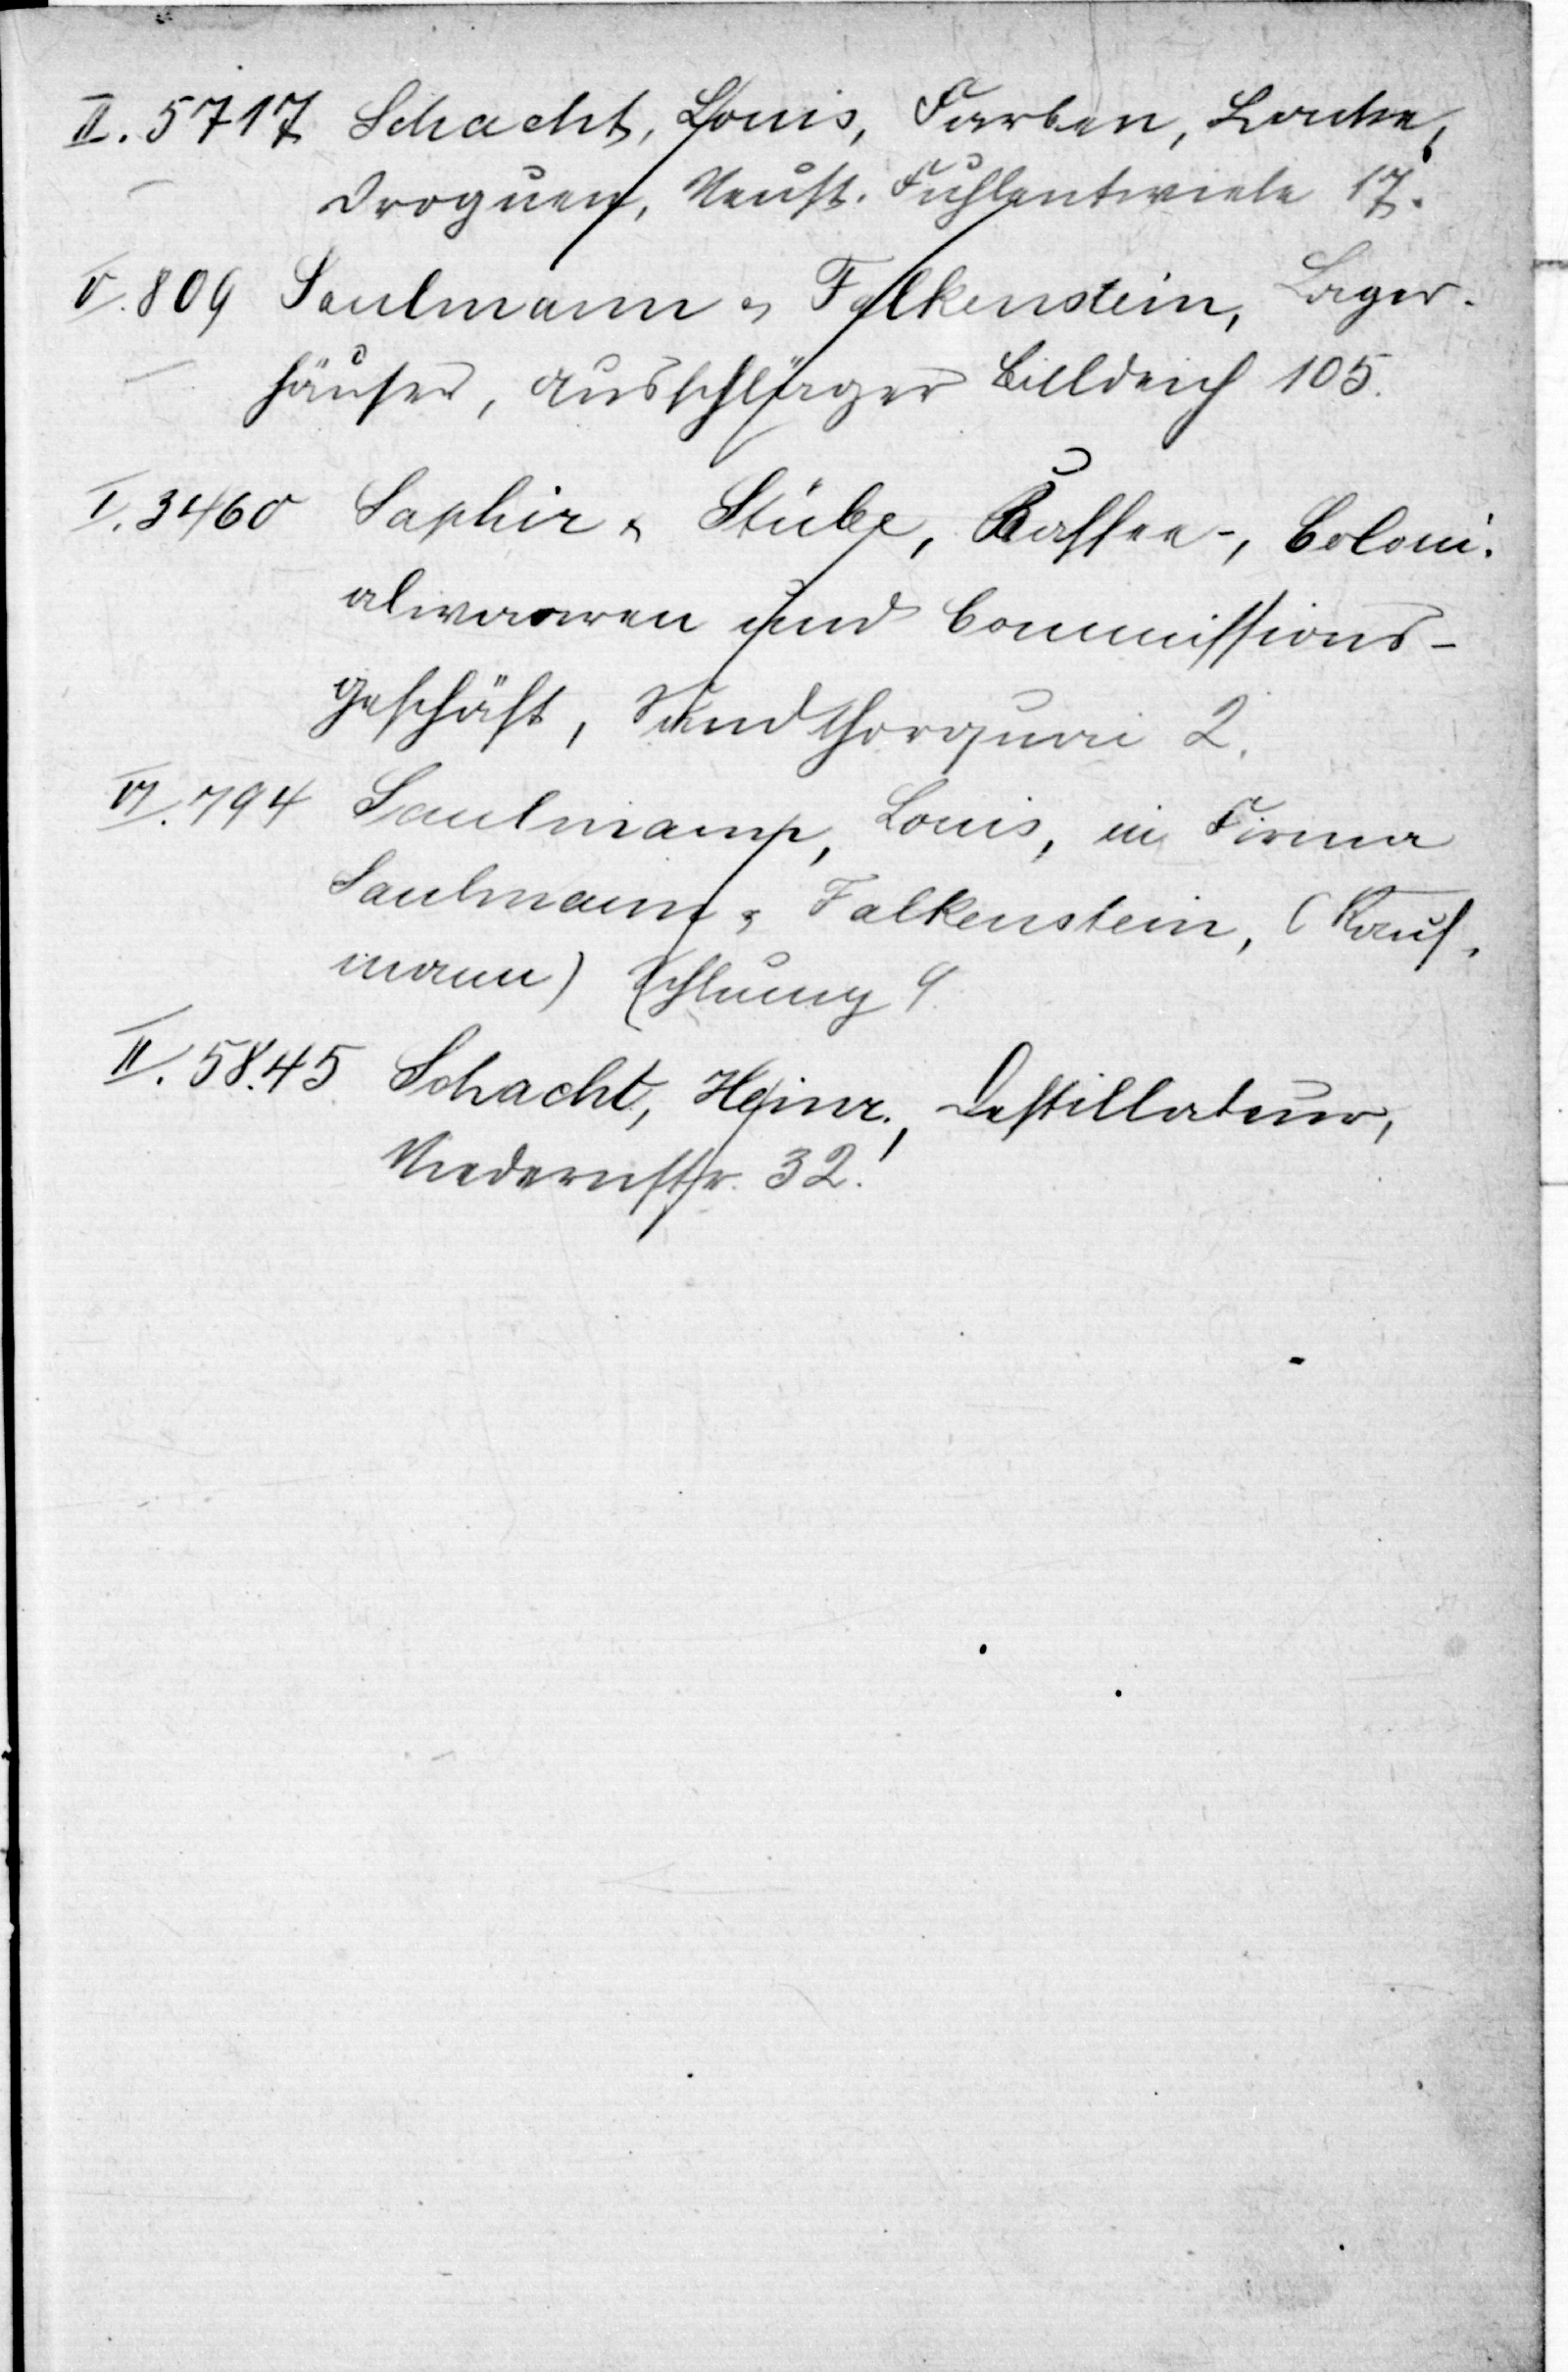 II. 5717 Schacht, Louis, Farben, Lacke,
Droguen, Neust. Fuhlentwiete 17.
V. 809 Saulmann & Falkenstein, Lager-
häuser, Ausschläger Billdeich 105.
I. 3460 Saphir & Stübe, Kaffee-, Coloni-
alwaaren und Commissions-
geschäft, Sandthorquai 2.
VI. 794 Saulmann, Louis, in Firma
Saulmann & Falkenstein, (Kauf-
mann) Schlump 9
II. 5845 Schacht, Heinr., Destillateur,
Niedernstr. 32.